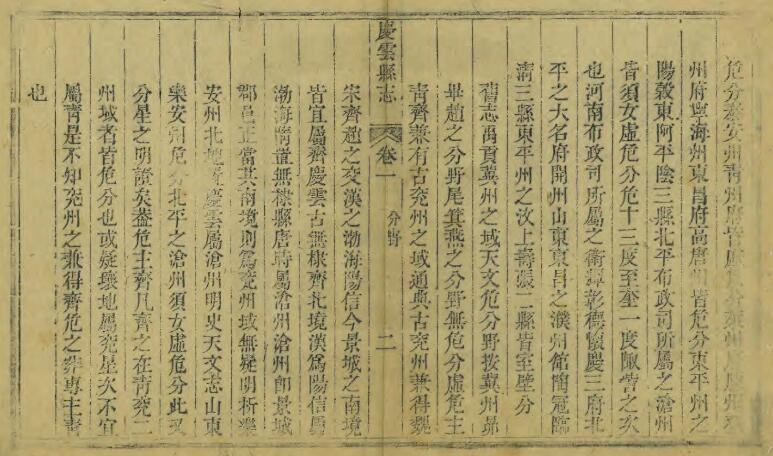 危分泰安州青州府皆
州府寧海州東昌府高唐皆危分東平州之
陽穀東阿平陰三縣北平布政司所屬之滄州
皆須女虛危分危十三度至奎一度陬訾之次
也河南布政司所屬之衛輝彰德懷慶三府北
平之大名府開州山東東昌之濮州館陶冠臨
清三縣東平州之汶上壽張二縣皆室壁分
舊志禹貢冀州之域天文危分野按冀州昴
畢趙之分野尾箕燕之分野無危分虛危主
青齊兼有古兗州之域通典古兗州兼得魏
慶雲縣志 卷一 分野 二
宋齊趙之交漢之渤海陽信今景城之南境
皆宜屬齊慶雲古無棣齊北境漢為陽信屬
渤海隋置無棣縣唐時屬滄州滄州卽景城
郡邑正當其南境則為兗州域無疑明析樂
安州北地為慶雲屬滄州明史天文志山東
樂安州危分北平之滄州須女虛危分此又
分星之明證矣蓋危主齊凡齊之在青兗二
州域者皆危分也或疑壤地屬兗星次不宜
屬青是不知兗州之兼得齊危之非專主青
也